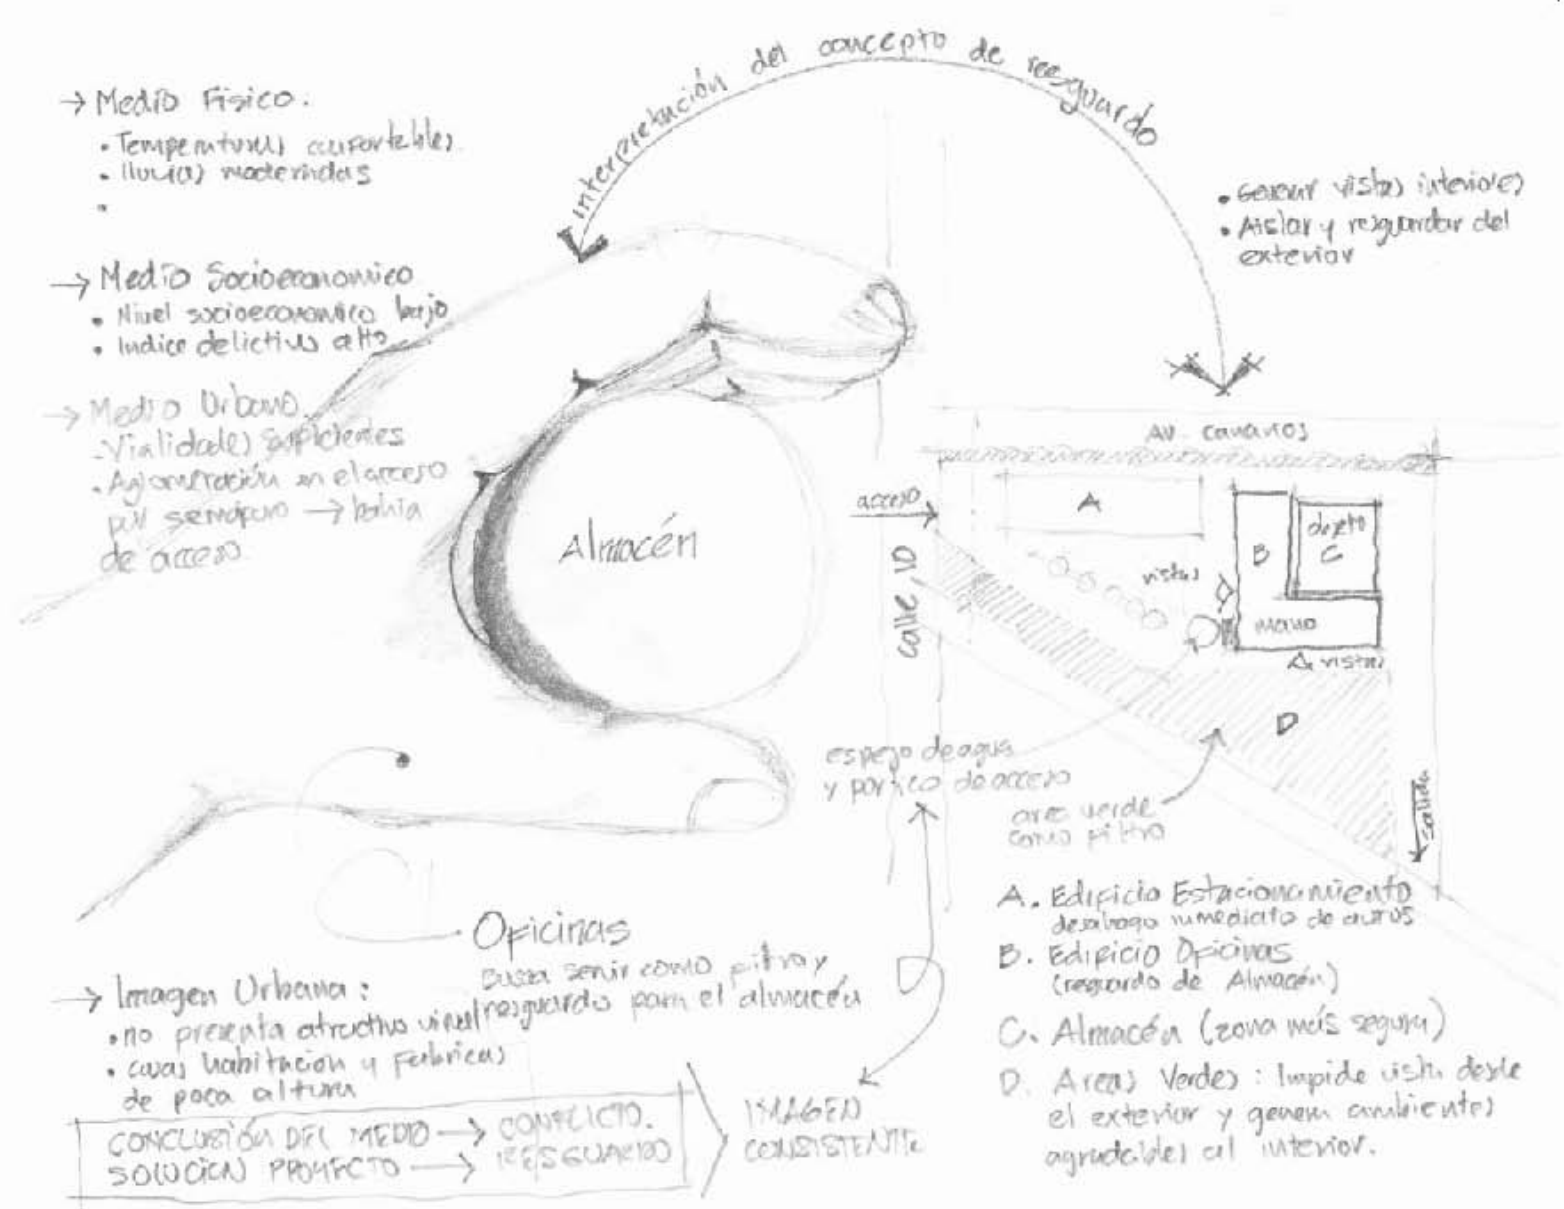 interpretación del concepto de resguardo
→ Medio Fisico.
• Temperaturas confortables.
• lluvias moderadas
•
→ Medio Socioeconomico
• Nivel socioeconomico bajo
• Indice delictivo alto
→ Medio Urbano.
- Vialidades suficientes
• Aglomeración en el acceso
por semáforo → bahia
de acceso
• Generar vistas interiores
• Aislar y resguardar del
exterior
Almacén
Av. Canarios
acceso
A
B
objeto
C
vistas
mano
vistas
calle, 10
D
espejo de agua
y portico de acceso
area verde
como filtro
salida
Oficinas
Busca servir como filtro y
resguardo para el almacén
→ Imagen Urbana:
• no presenta atractivo visual
• casas habitación y fabricas
de poca altura
CONCLUSIÓN DEL MEDIO → CONFLICTO.
SOLUCION PROYECTO → RESGUARDO
IMAGEN
CONSISTENTE
A. Edificio Estacionamiento
desahogo inmediato de autos
B. Edificio Oficinas
(resguardo de Almacén)
C. Almacén (zona más segura)
D. Areas Verdes: Impide vista desde
el exterior y genera ambientes
agradables al interior.